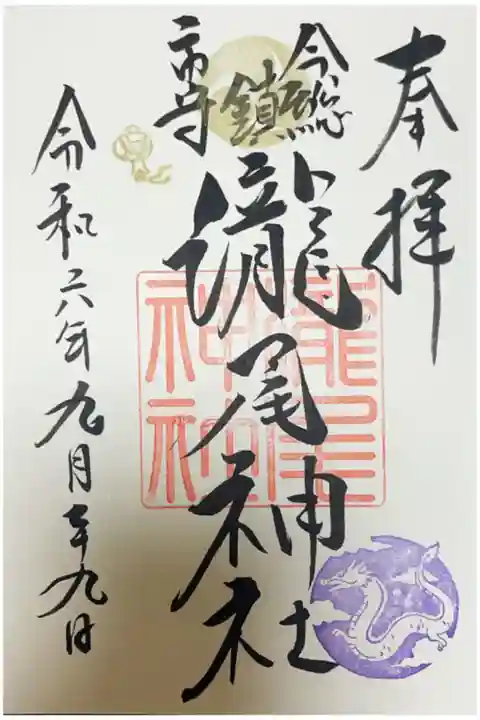 奉拝
今市
総鎮守
瀧尾神社
瀧尾
神社
令和六年九月二十九日